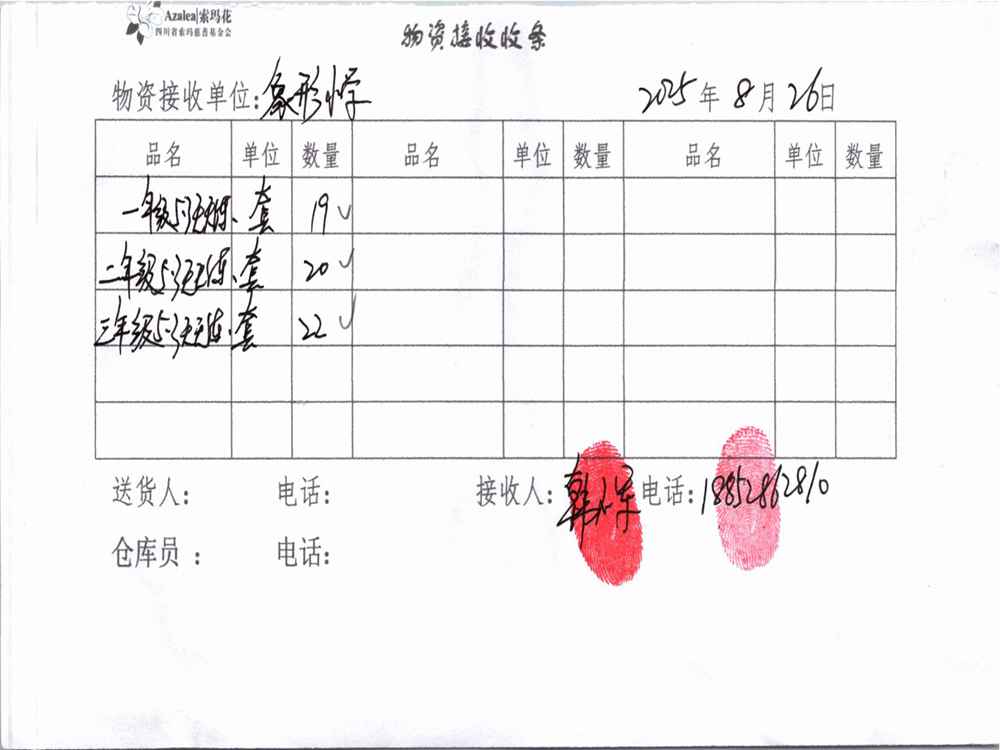 Azalea|索玛花
四川省索玛慈善基金会
物资接收收条
物资接收单位:象形小学 2025年8月26日
品名 单位 数量 品名 单位 数量 品名 单位 数量
一年级5·3天天练、套 19 ✓
二年级5·3天天练、套 20 ✓
三年级5·3天天练、套 22 ✓
送货人: 电话: 接收人:韩 电话:18852862810
仓库员 : 电话: